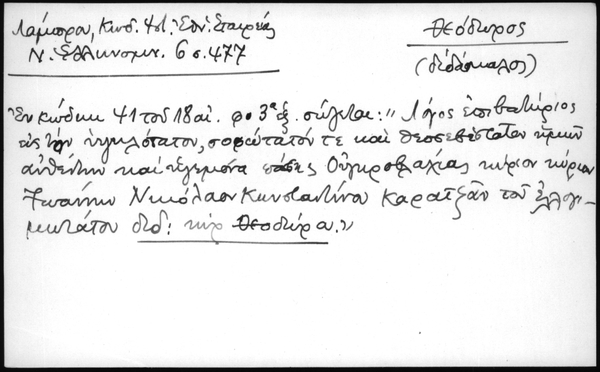 Λάμπρου, Κώδ. Ἱστ. Ἐθν. Ἑταιρείας
Ν. Ἑλληνομν. 6 σ. 477
Θεόδωρος
(διδάσκαλος)
Ἐν κώδικι 41 τοῦ 18 αἰ. φ. 3α ἑξ. σώζεται: "Λόγος ἐπιβατήριος
εἰς τὸν ὑψηλότατον, σοφώτατόν τε καὶ θεοσεβέστατον ἡμῶν
αὐθέντην καὶ ἡγεμόνα πάσης Οὐγκροβλαχίας κύριον κύριον
Ἰωάννην Νικόλαον Κωνσταντῖνον Καρατζᾶν τοῦ ἐλλογι-
μωτάτου διδ: κὺρ Θεοδώρου."